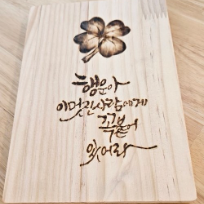 행운아
이멋진사람에게
꼭붙어
있어라